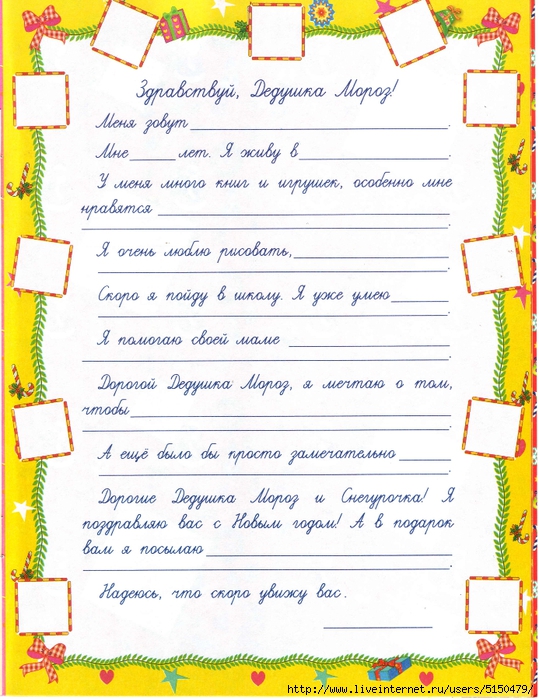 Здравствуй, Дедушка Мороз!
Меня зовут .
Мне лет. Я живу в .
У меня много книг и игрушек, особенно мне
нравятся
.
Я очень люблю рисовать,
.
Скоро я пойду в школу. Я уже умею
.
Я помогаю своей маме
.
Дорогой Дедушка Мороз, я мечтаю о том,
чтобы
.
А ещё было бы просто замечательно
.
Дорогие Дедушка Мороз и Снегурочка! Я
поздравляю вас с Новым годом! А в подарок
вам я посылаю
.
Надеюсь, что скоро увижу вас.
http://www.liveinternet.ru/users/5150479/